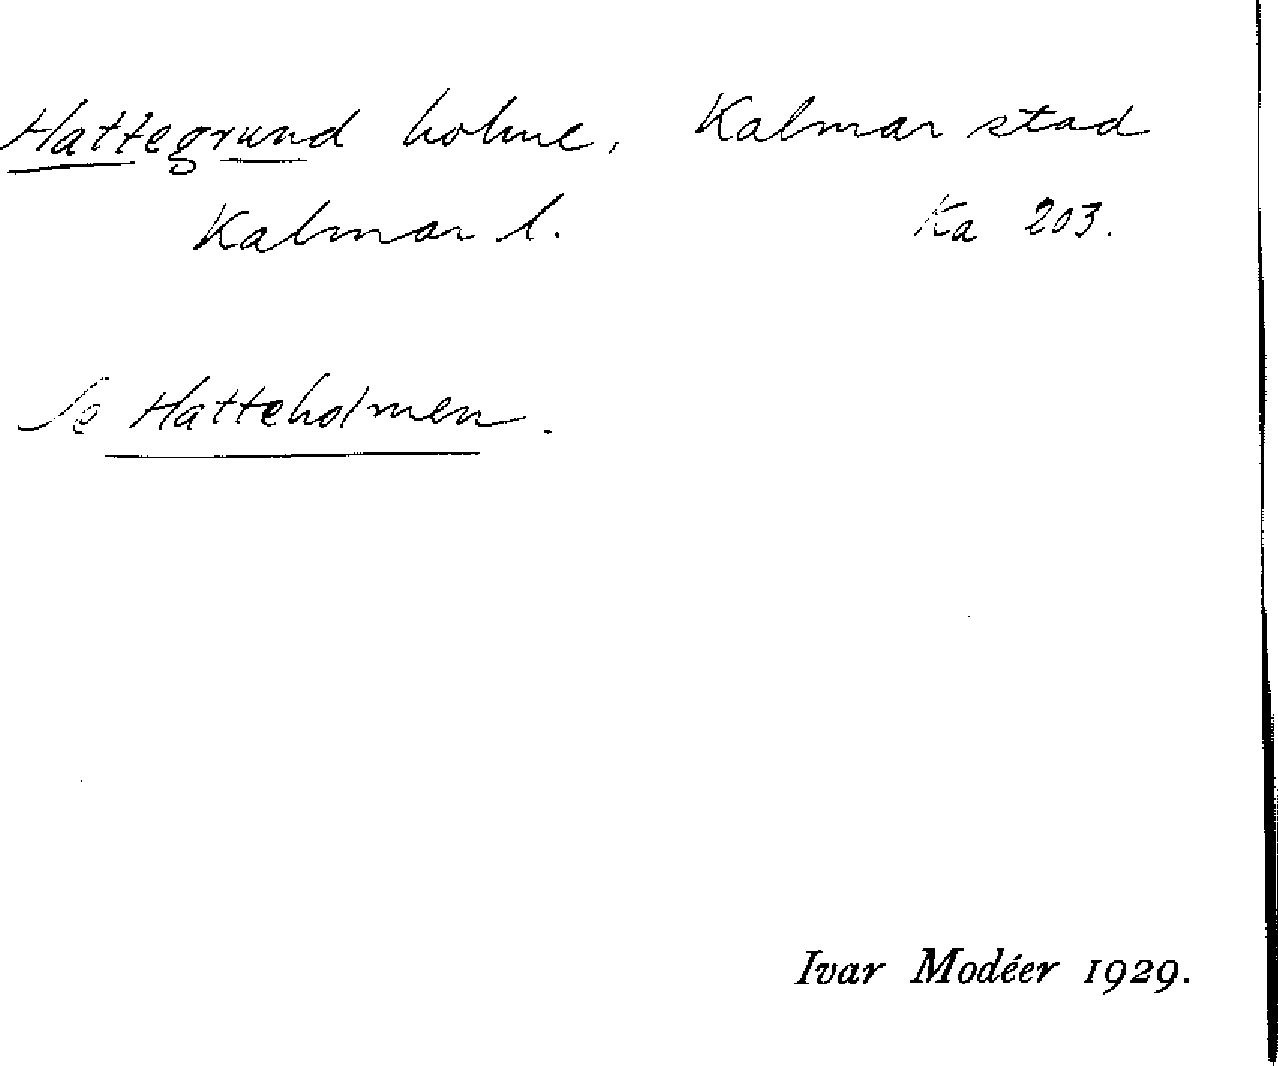 Hattegrund holme, Kalmar stad
Kalmar l. Ka 203.
Se Hatteholmen.
Ivar Modéer 1929.